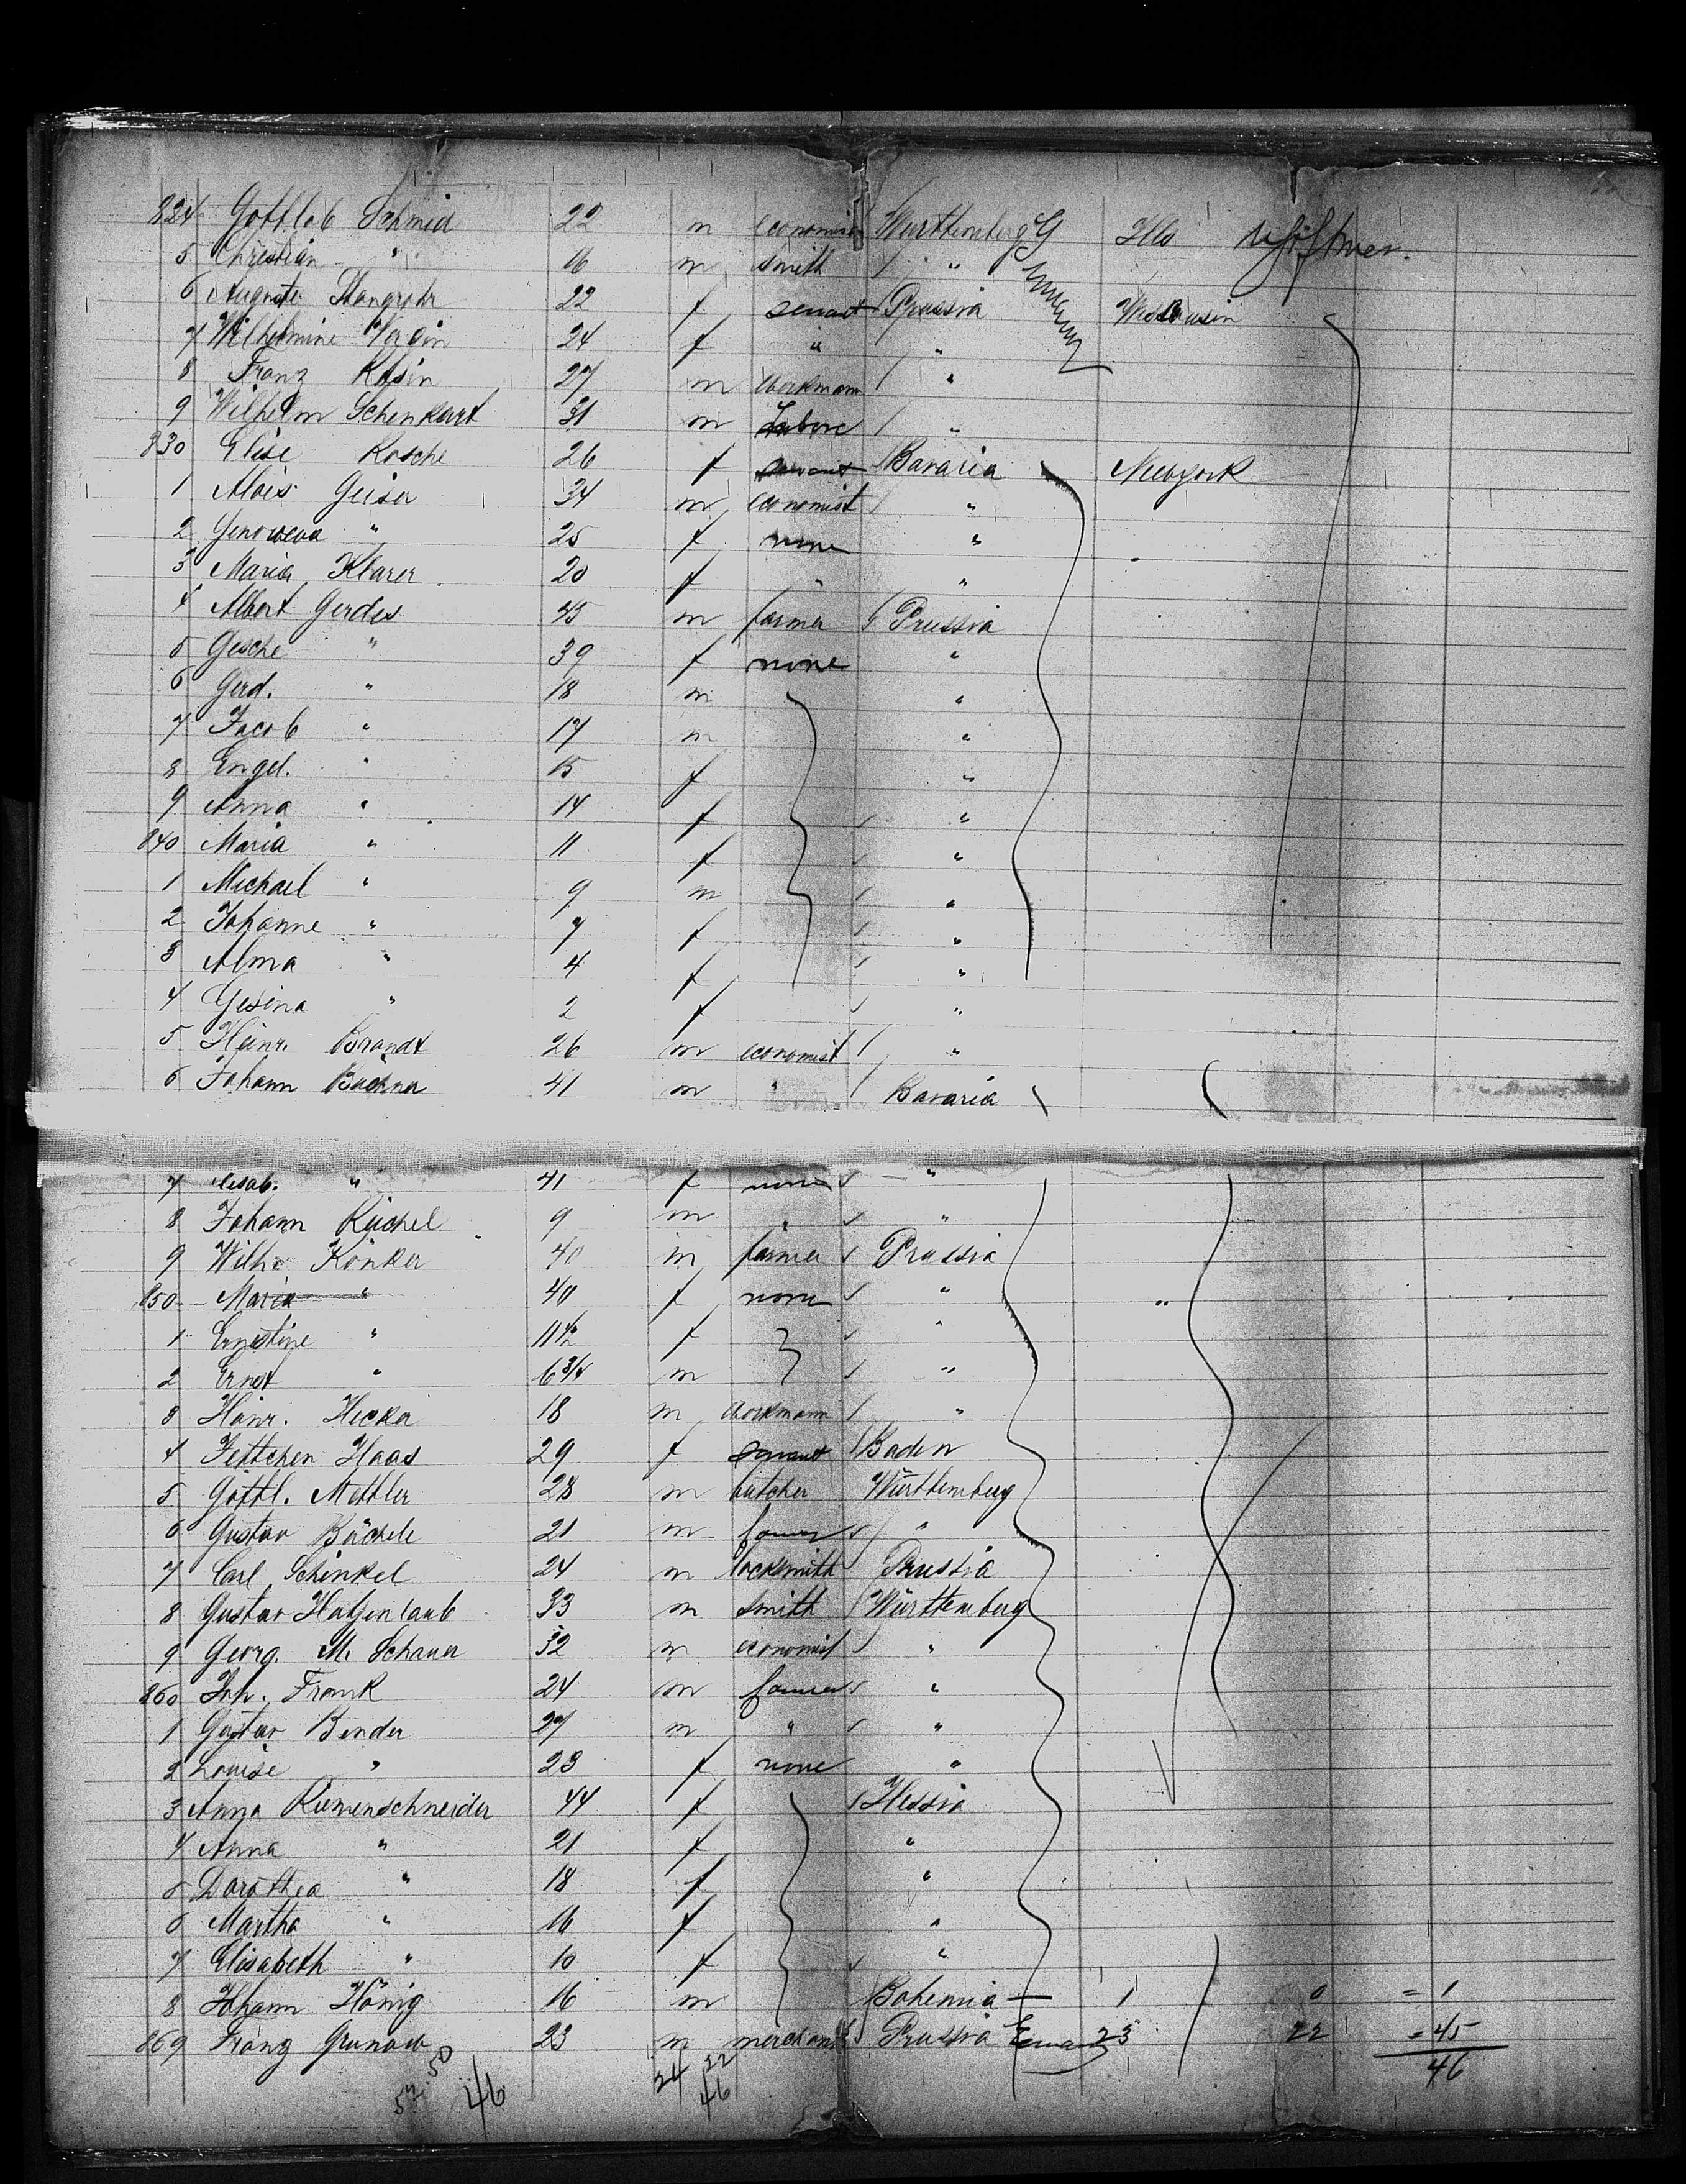 824 Gottlob Schmid 22 m economist Württemberg Ills
5 Christian " 16 m smith "
6 Auguste 22 f servant Prussia Wisconsin
7 Wilhelmine 24 f " "
8 Franz Rosin 27 m workmann "
9 Wilhelm Schenkart 31 m "
830 Elise Rosche 26 f servant Bavaria Newyork
1 Alois Geiser 34 m economist "
2 Genoweva " 25 f none "
3 Maria Klarer 20 f "
4 Albert Gerdes 45 m farmer Prussia
5 Gesche " 39 f none "
6 Gerd. " 18 m "
7 Jacob " 17 m "
8 Engel. " 15 f "
9 Anna " 14 f "
840 Maria " 11 f "
1 Michael " 9 m "
2 Johanne " 7 f "
3 Alma " 4 f "
4 Gesina " 2 f "
5 Heinr. Brandt 26 m economist "
6 Johann 41 m " Bavaria
7 Elisab. " 41 f none "
8 Johann Küchel 9 m "
9 Wilh. Könker 40 m farmer Prussia
850 Maria " 40 f none " "
1 Ernestine " 11 1/2 f "
2 Ernst " 6 3/4 m "
3 Heinr. Hecker 18 m workmann "
4 Jettchen Haas 29 f servant Baden
5 Gottl. Mettler 28 m butcher Württemberg
6 Gustav Bächele 21 m farmer "
7 Carl Schinkel 24 m locksmith Prussia
8 Gustav Hatzenlaub 33 m smith Württemberg
9 Georg. M. Schauer 32 m economist "
860 Joh. Frank 24 m farmer "
1 Gustav Bender 27 m " "
2 Louise " 23 f none "
3 Anna Riemenschneider 44 f Hessia
4 Anna " 21 f "
5 Dorothea " 18 f "
6 Martha " 16 f "
7 Elisabeth " 10 f "
8 Johann König 16 m Bohemia — 1 0 = 1
869 Franz Grunow 23 m merchant Prussia 23 22 = 45
50 24 22 46
46 46